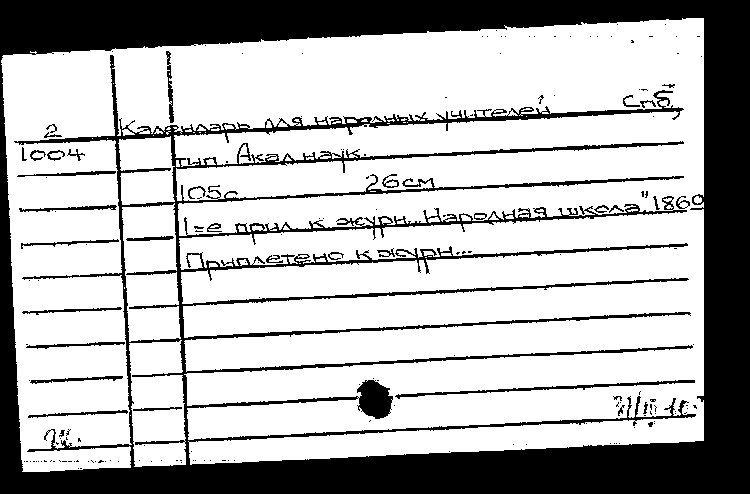 2 Календарь для народных учителей Спб,
1004 тип. Акад. наук.
105с 26см
1=е прил. к журн. „Народная школа" 1869
Приплетено к журн...